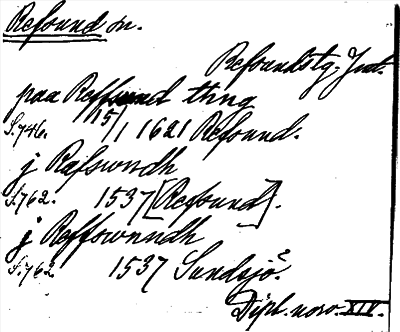 Refsund sn.
Refsunds tg. Jmt.
paa Reffsund thing
S. 746. 15/1 1621 Refsund.
j Rafswndh
S. 762. 1537 [Refsund].
j Reffswnndh
S. 762 1537 Sundsjö
Dipl. norv. XIV.